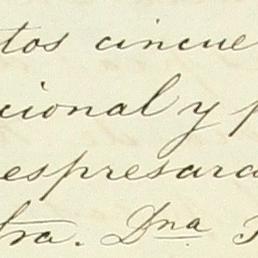 tos cincue
cional y p
espresara
tra. Dna